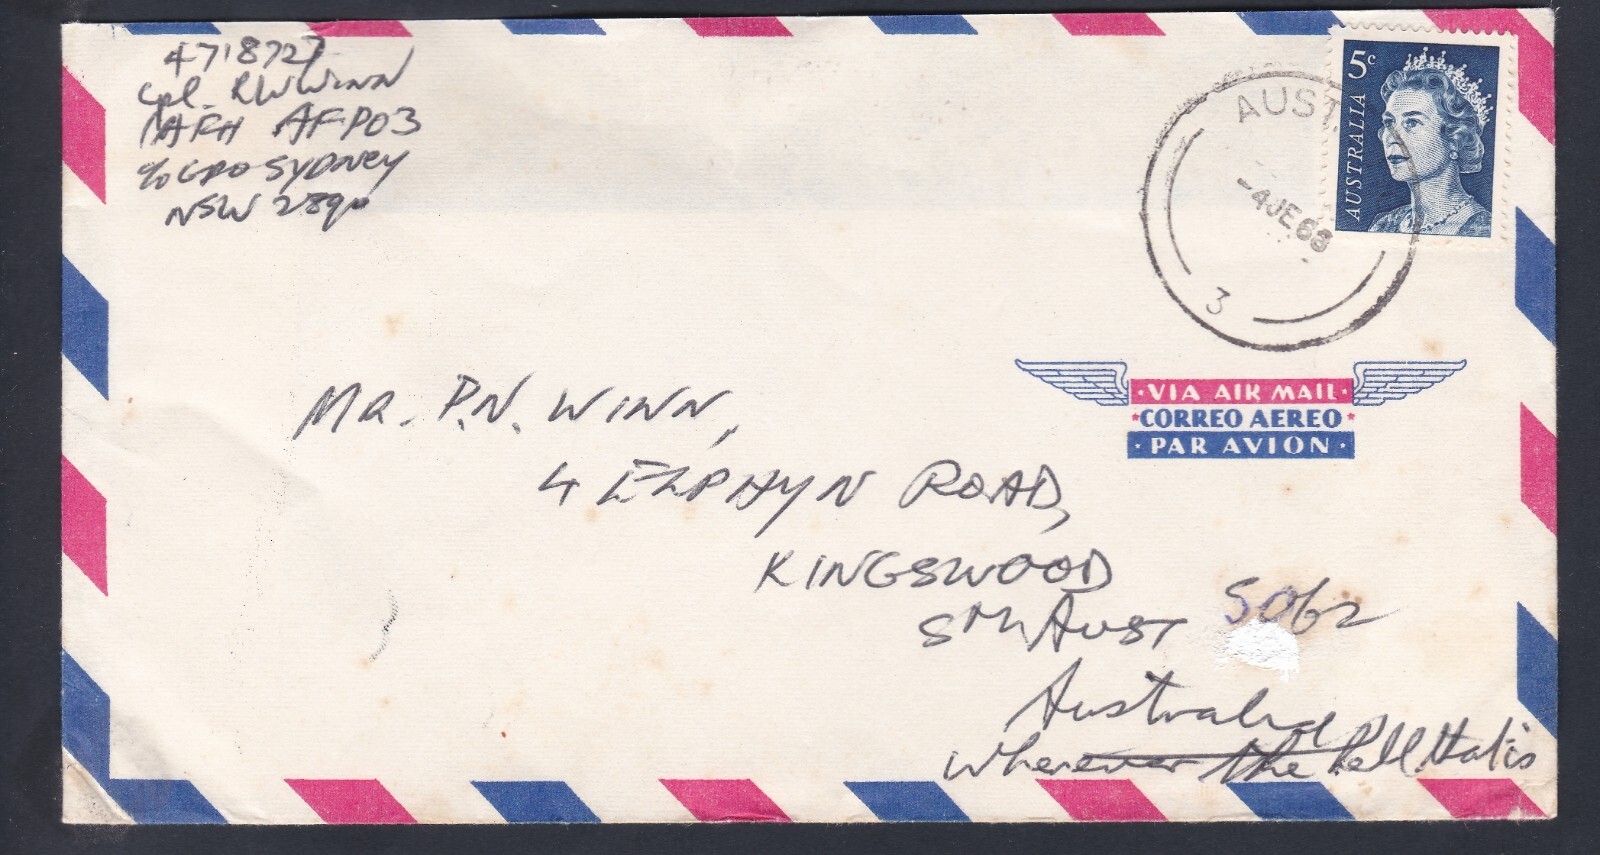 4718727
Cpl. RW WINN
1AFH AFPO3
c/o GPO SYDNEY
NSW 2890
5c
AUSTRALIA
AUST
-4JE68
3
VIA AIR MAIL
CORREO AEREO
PAR AVION
MR. P.N. WINN,
4 ELPHYN ROAD,
KINGSWOOD
STH AUST 5062
Australia
Wherever the hell that is